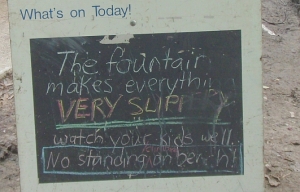 What's on Today!
The fountain
makes everything
VERY SLIPP
watch your kids well.
No standing on bench!